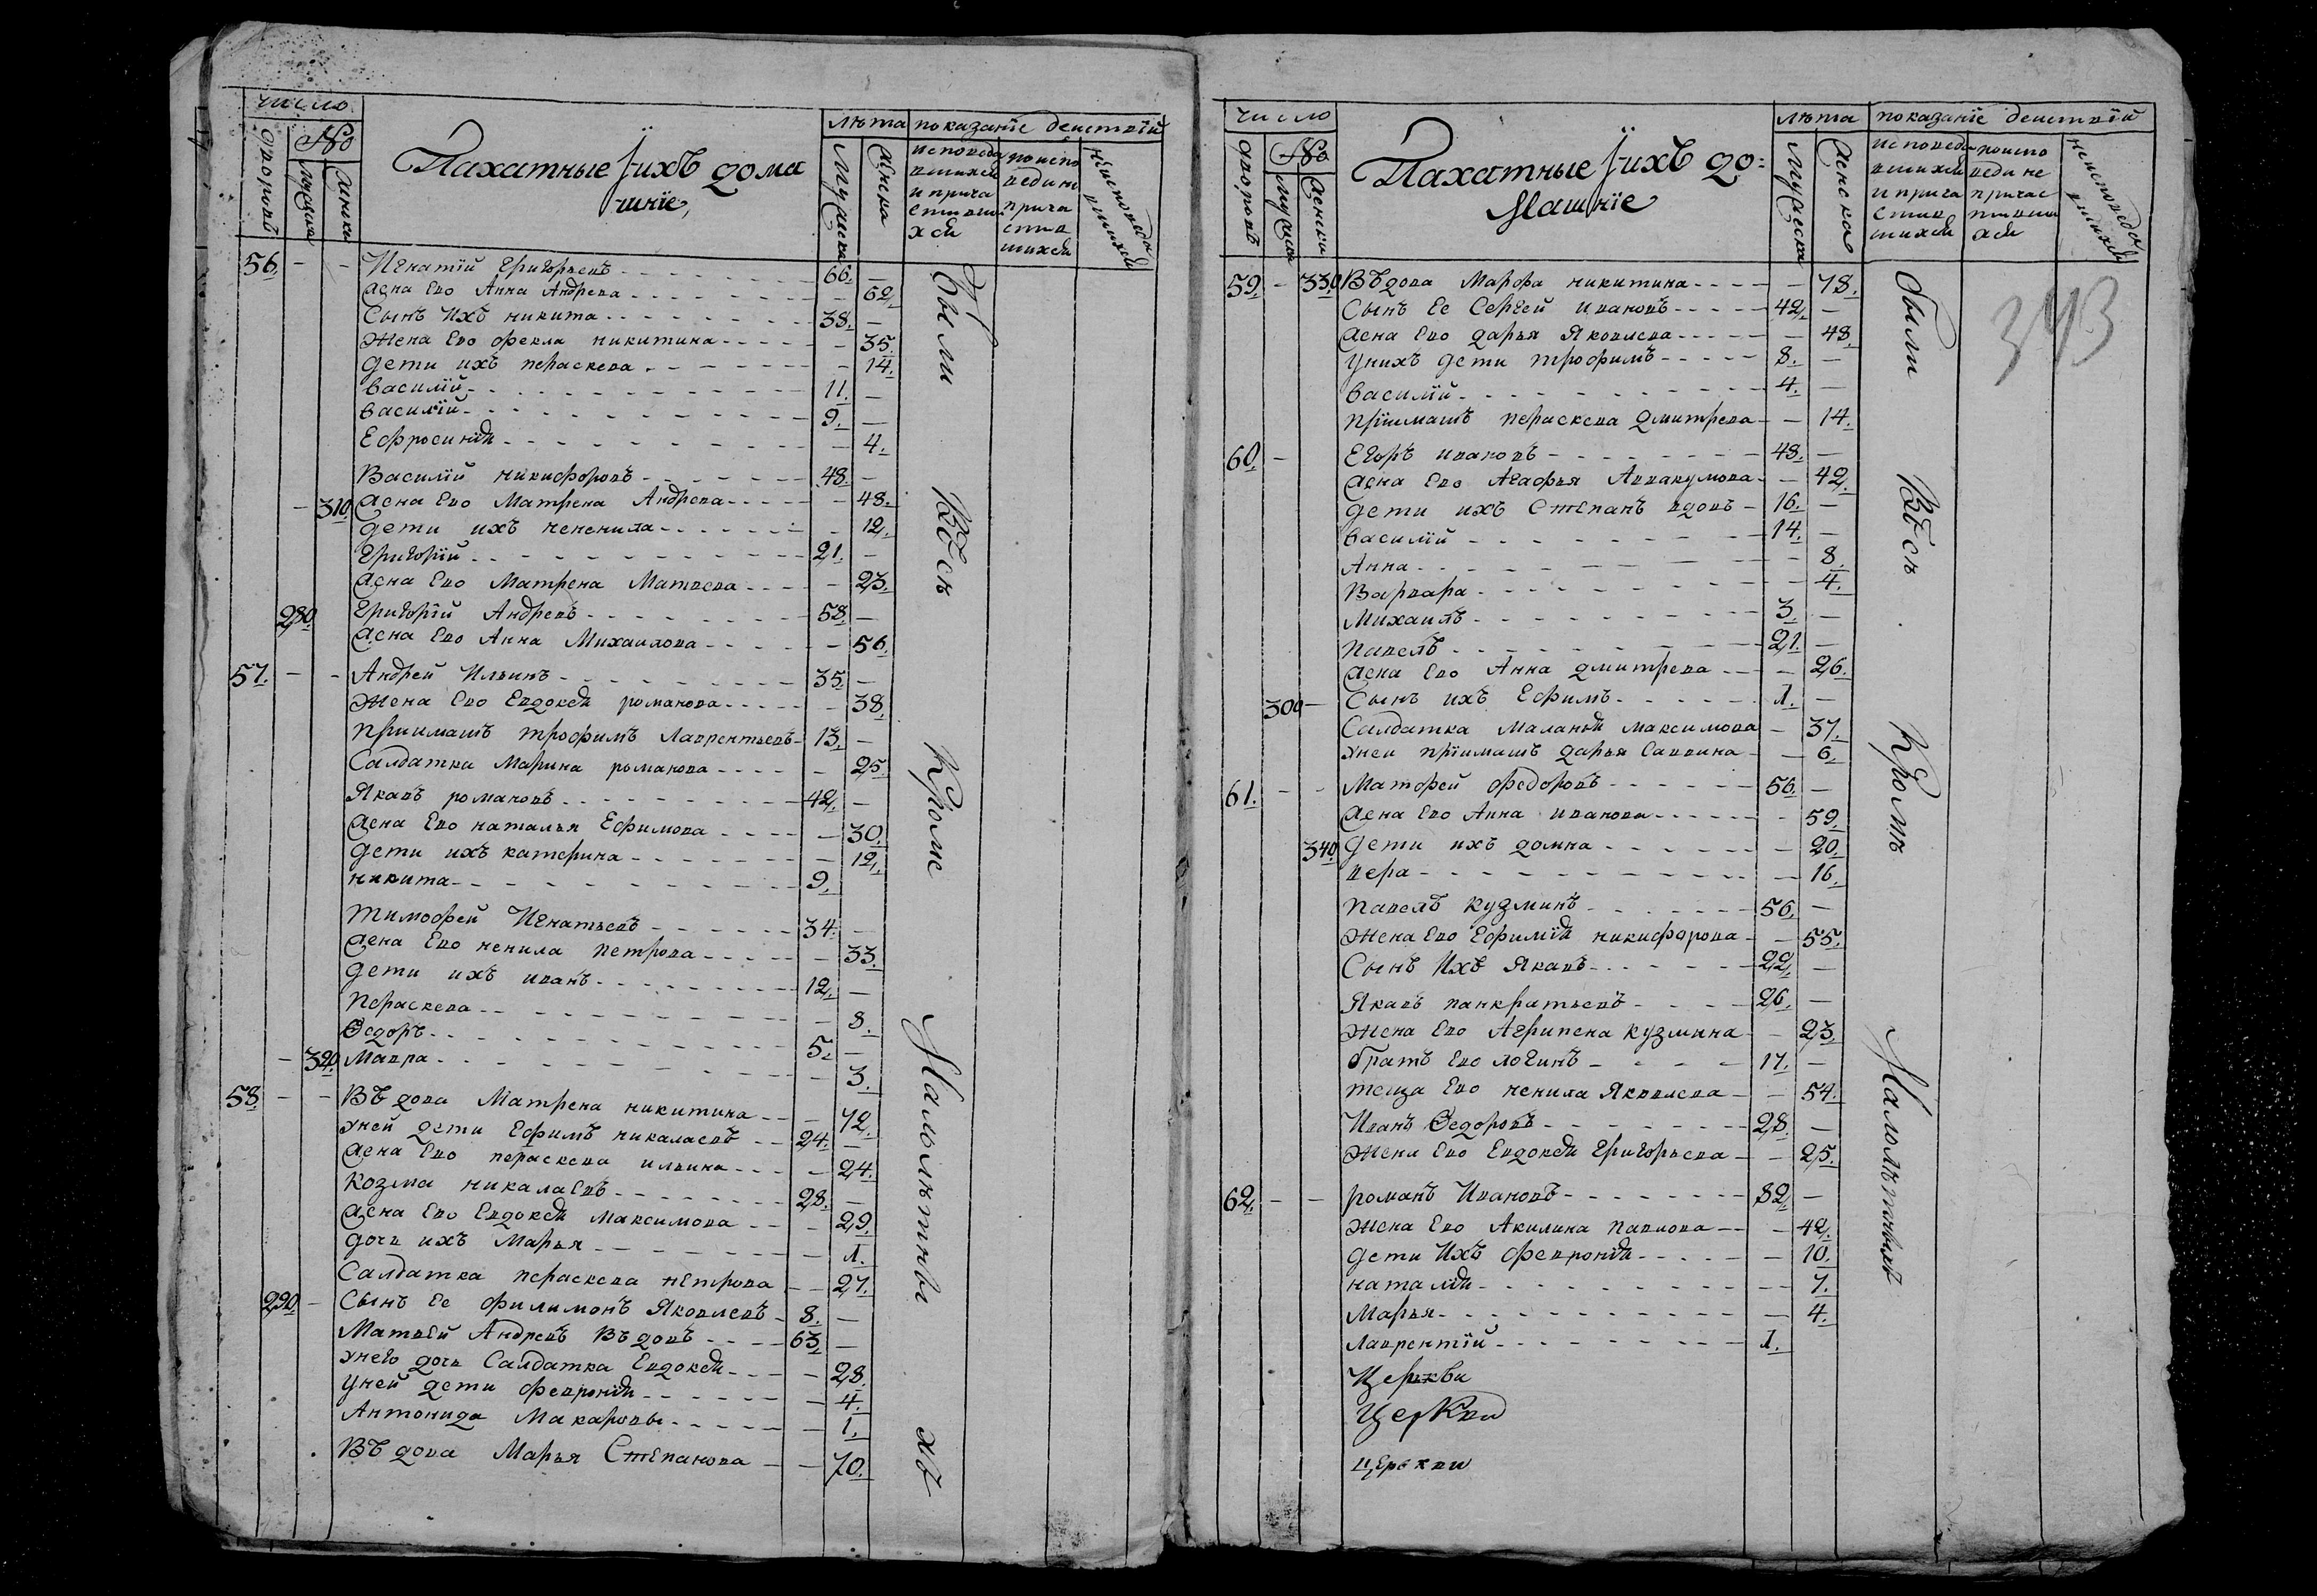 число
дворовъ
No
мужска
женска
Пахатные ÿихъ дома
шнїе,
лѣта
мужеска
женска
показанїе деиствїй
исповеда
вшихся
и прича
стивши
хся
поиспо
веди не
прича
стив
шихся
неисповеда
вшихся
56. - - Игнатїй Григорьевъ - 66. -
жена Ево Анна Андрева - - 62.
Сынъ Ихъ никита - 38. -
жена Ево фекла никитина - - 35.
дети ихъ пераскева - - 14.
василїй - 11. -
василїй - 9. -
Ефросинїя - - 4.
Василїй никифоровъ - 48. -
- 310 жена Ево Матрена Андрева - - 48.
дети ихъ нененила - - 12.
григорїй - 21. -
жена Ево Матрена Матвеева - - 23.
280. григорїй Андревъ - 58. -
жена Ево Анна Михаилова - - 56.
57. - - Андрей Ильинъ - 35. -
жена Ево Евдокея романова - - 38.
приимашъ трофимъ Лаврентьевъ - 13. -
Салдатка Марина романова - - 25.
Яковъ романовъ - 42. -
жена Ево наталья Ефимова - - 30.
дети ихъ катерина - - 12.
никита - 9.
тимофей Игнатьевъ - 34. -
жена Ево ненила петрова - - 33.
дети ихъ иванъ - 12. -
пераскева - - 8.
Ѳедоръ - 5. -
- 320. Мавра - - 3.
58. - - Въдова Матрена никитина - - 72.
уней дети Ефимъ никалаевъ - 24. -
жена Ево пераскева ильина - - 24.
козма никалаевъ - 28. -
жена Ево Евдокея Максимова - - 29.
дочь ихъ Марья - - 1.
Салдатка пераскева петрова - - 27.
290 - Сынъ Ее филимонъ Яковлевъ - 8. -
Матвей Андревъ Въдовъ - 63. -
унего дочь Салдатка Евдокея - - 28.
уней дети феврониѧ - - 4.
Антонида Макаровы - - 1.
Въдова Марья Степанова - - 70.
были Всѣ Кроме Малолѣтны хъ
число
дворовъ
No
мужска
женска
Пахатные ÿихъ до=
Машнїе
лѣта
мужеска
женска
показанїе деиствїй
исповеда
вшихся
и прича
стив
шихся
поиспо
веди не
причас
тивши
хся
неисповеда
вшихся
343
59. - 330 Въдова Марфа никитина - - 78.
Сынъ Ее Сергей ивановъ - 42. -
жена Ево дарья Яковлева - - 48.
унихъ дети трофимъ - 8. -
василїй - 4. -
прїимашъ пераскева дмитрева - - 14.
60. - Егоръ ивановъ - 48. -
жена Ево Агафья Аввакумова - - 42.
дети ихъ Степанъ вдовъ - 16. -
василїй - 14. -
Анна - - 8.
Варвара - - 4.
Михаилъ - 3. -
павелъ - 21. -
жена Ево Анна дмитрева - - 26.
300 - Сынъ ихъ Ефимъ - 1. -
Салдатка маланья максимова - 37.
уней прїимашъ дарья Саввина - - 6.
61. - - Матфей федоровъ - 56. -
жена Ево Анна иванова - - 59.
340. дети ихъ домна - - 20.
вера - - 16.
павелъ кузминъ - 56. -
жена Ево Ефимїя никифорова - - 55.
Сынъ Ихъ Яковъ - 22. -
Яковъ панкратьевъ - 26. -
жена Ево Агрипена кузмина - - 23.
братъ Ево логинъ - 17. -
теща Ево ненила Яковлева - - 54.
Иванъ Ѳедоровъ - 28. -
жена Ево Евдокея григорьева - - 25.
62. - - романъ Ивановъ - 82. -
жена Ево Акилина павлова - - 42.
дети Ихъ февронїя - - 10.
наталїя - - 7.
Марья - - 4.
лаврентїй - 1.
Церкви
Церкви
церкви
были Всѣ Кромѣ Малолѣтныхъ